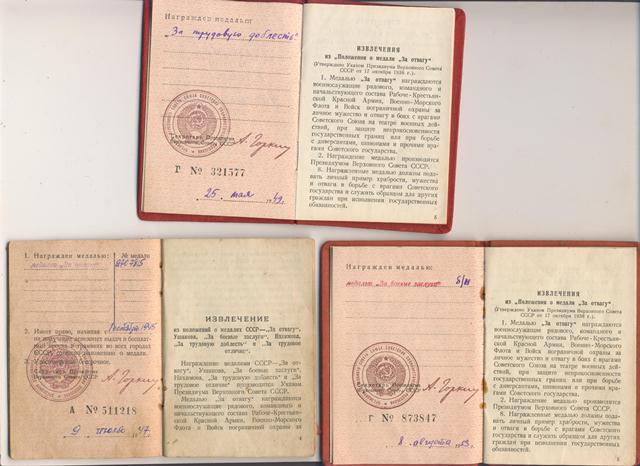 Награжден медалью:
„За трудовую доблесть"
Секретарь Президиума
Верховного Совета СССР
А. Горкин
Г № 321577
25 мая 49
ИЗВЛЕЧЕНИЯ
из „Положения о медали „За отвагу"
(Утверждено Указом Президиума Верховного Совета
СССР от 17 октября 1938 г.).
1. Медалью „За отвагу" награждаются
военнослужащие рядового, командного и
начальствующего состава Рабоче-Крестьян-
ской Красной Армии, Военно-Морского
Флота и Войск пограничной охраны за
личное мужество и отвагу в боях с врагами
Советского Союза на театре военных дей-
ствий, при защите неприкосновенности
государственных границ или при борьбе
с диверсантами, шпионами и прочими вра-
гами Советского государства.
2. Награждение медалью производится
Президиумом Верховного Совета СССР.
8. Награжденные медалью должны пода-
вать личный пример храбрости, мужества
и отваги в борьбе с врагами Советского
государства и служить образцом для других
граждан при исполнении государственных
обязанностей.
1. Награжден медалью:
№ медали
медалью „За отвагу"
2. Имеет право, начиная с
на получение денежных выдач и бесплат-
СССР
А № 511218
9 47
А. Горкин
ИЗВЛЕЧЕНИЕ
из положений о медалях СССР—„За отвагу",
Ушакова, „За боевые заслуги", Нахимова,
„За трудовую доблесть" и „За трудовое
отличие".
Награждение медалями СССР—„За от-
вагу", Ушакова, „За боевые заслуги",
Нахимова, „За трудовую доблесть" и „За
трудовое отличие" производится Указом
Президиума Верховного Совета СССР.
Медалью „За отвагу" награждаются
военнослужащие рядового, командного и
начальствующего состава Рабоче-Кресть-
янской Красной Армии, Военно-Морского
Флота и Войск пограничной охраны за
4
Награжден медалью:
медалью „За боевые заслуги" б/н
Секретарь Президиума
Верховного Совета СССР
А. Горкин
Г № 873847
8 августа 53
ИЗВЛЕЧЕНИЯ
из „Положения о медали „За отвагу"
(Утверждено Указом Президиума Верховного Совета
СССР от 17 октября 1938 г.).
1. Медалью „За отвагу" награждаются
военнослужащие рядового, командного и
начальствующего состава Рабоче-Крестьян-
ской Красной Армии, Военно-Морского
Флота и Войск пограничной охраны за
личное мужество и отвагу в боях с врагами
Советского Союза на театре военных дей-
ствий, при защите неприкосновенности
государственных границ или при борьбе
с диверсантами, шпионами и прочими вра-
гами Советского государства.
2. Награждение медалью производится
Президиумом Верховного Совета СССР.
8. Награжденные медалью должны пода-
вать личный пример храбрости, мужества
и отваги в борьбе с врагами Советского
государства и служить образцом для других
граждан при исполнении государственных
обязанностей.